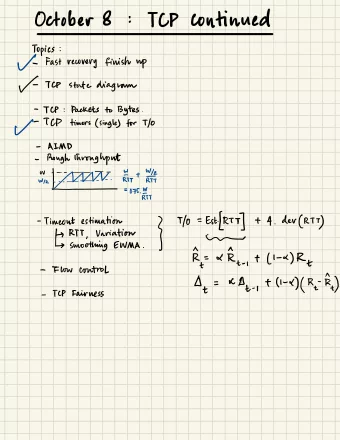 October 8 : TCP continued
Topics :
- Fast recovery finish up
- TCP state diagram
- TCP : Packets to Bytes.
- TCP timers (single) for T/O
- AIMD
- Rough throughput
W
W/2
W/RTT + W/2/RTT
= 0.75 W/RTT
- Timeout estimation
↳ RTT, Variation
↳ Smoothing EWMA.
T/O = Est[RTT] + 4. dev(RTT)
R̂_t = α R̂_{t-1} + (1-α) R_t
Δ̂_t = α Δ_{t-1} + (1-α)(R_t - R̂_t)
- Flow control
- TCP Fairness